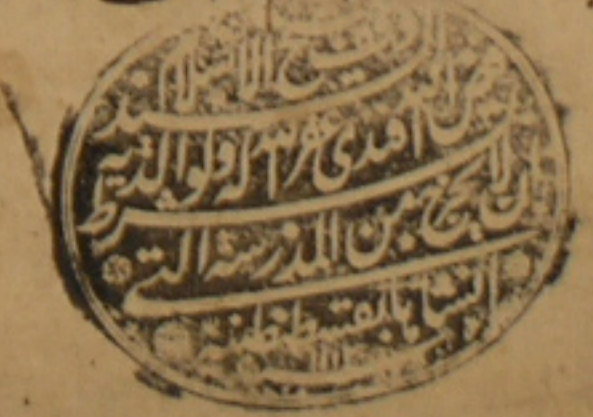 شيخ الاسلام السيد
فيض الله افندى غفر الله له ولوالديه
بشرط ان لا يخرج من المدرسة التى
انشاها بقسطنطينية